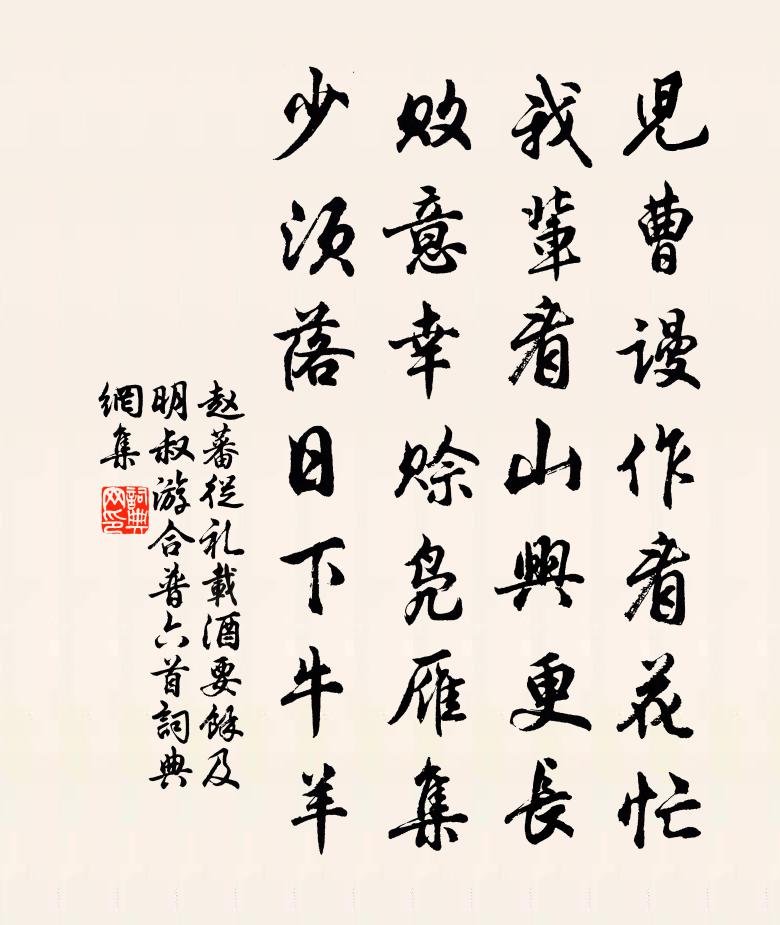 児曹谩作看花忙
我輩看山興更長
敗意幸賒凫雁集
少须落日下牛羊
赵蕃従礼載酒要餘及
明叔游合普六首詞典
網集
詞典网印